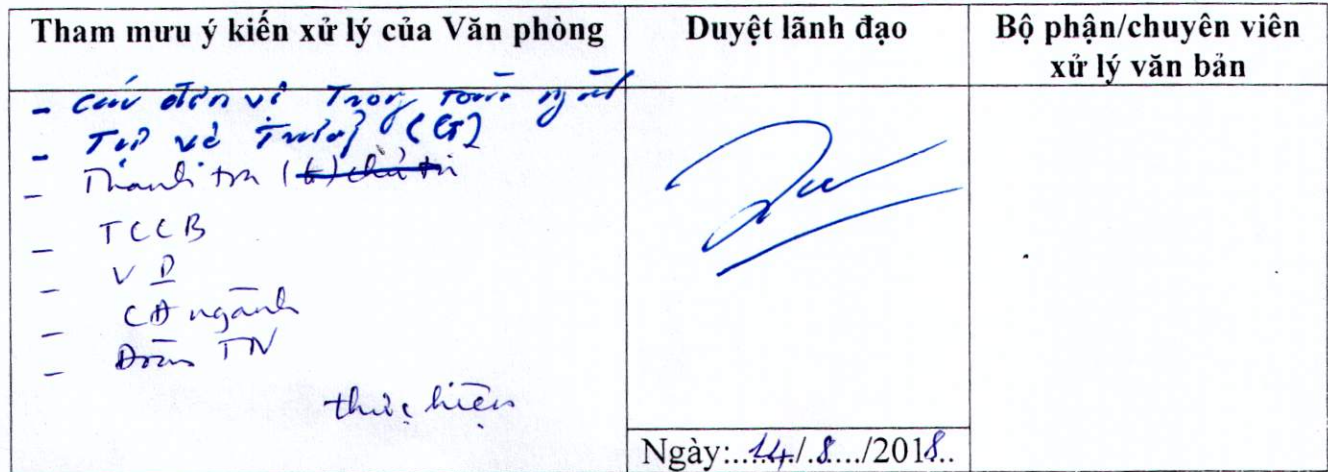 Tham mưu ý kiến xử lý của Văn phòng
Duyệt lãnh đạo
Bộ phận/chuyên viên
xử lý văn bản
- Các đơn vị Trong toàn ngành
- và
- Thanh tra (b) chủ trì
- TCCB
- VP
- CĐ ngành
- Đoàn TN
thực hiện
Ngày:..14./.8.../2018..